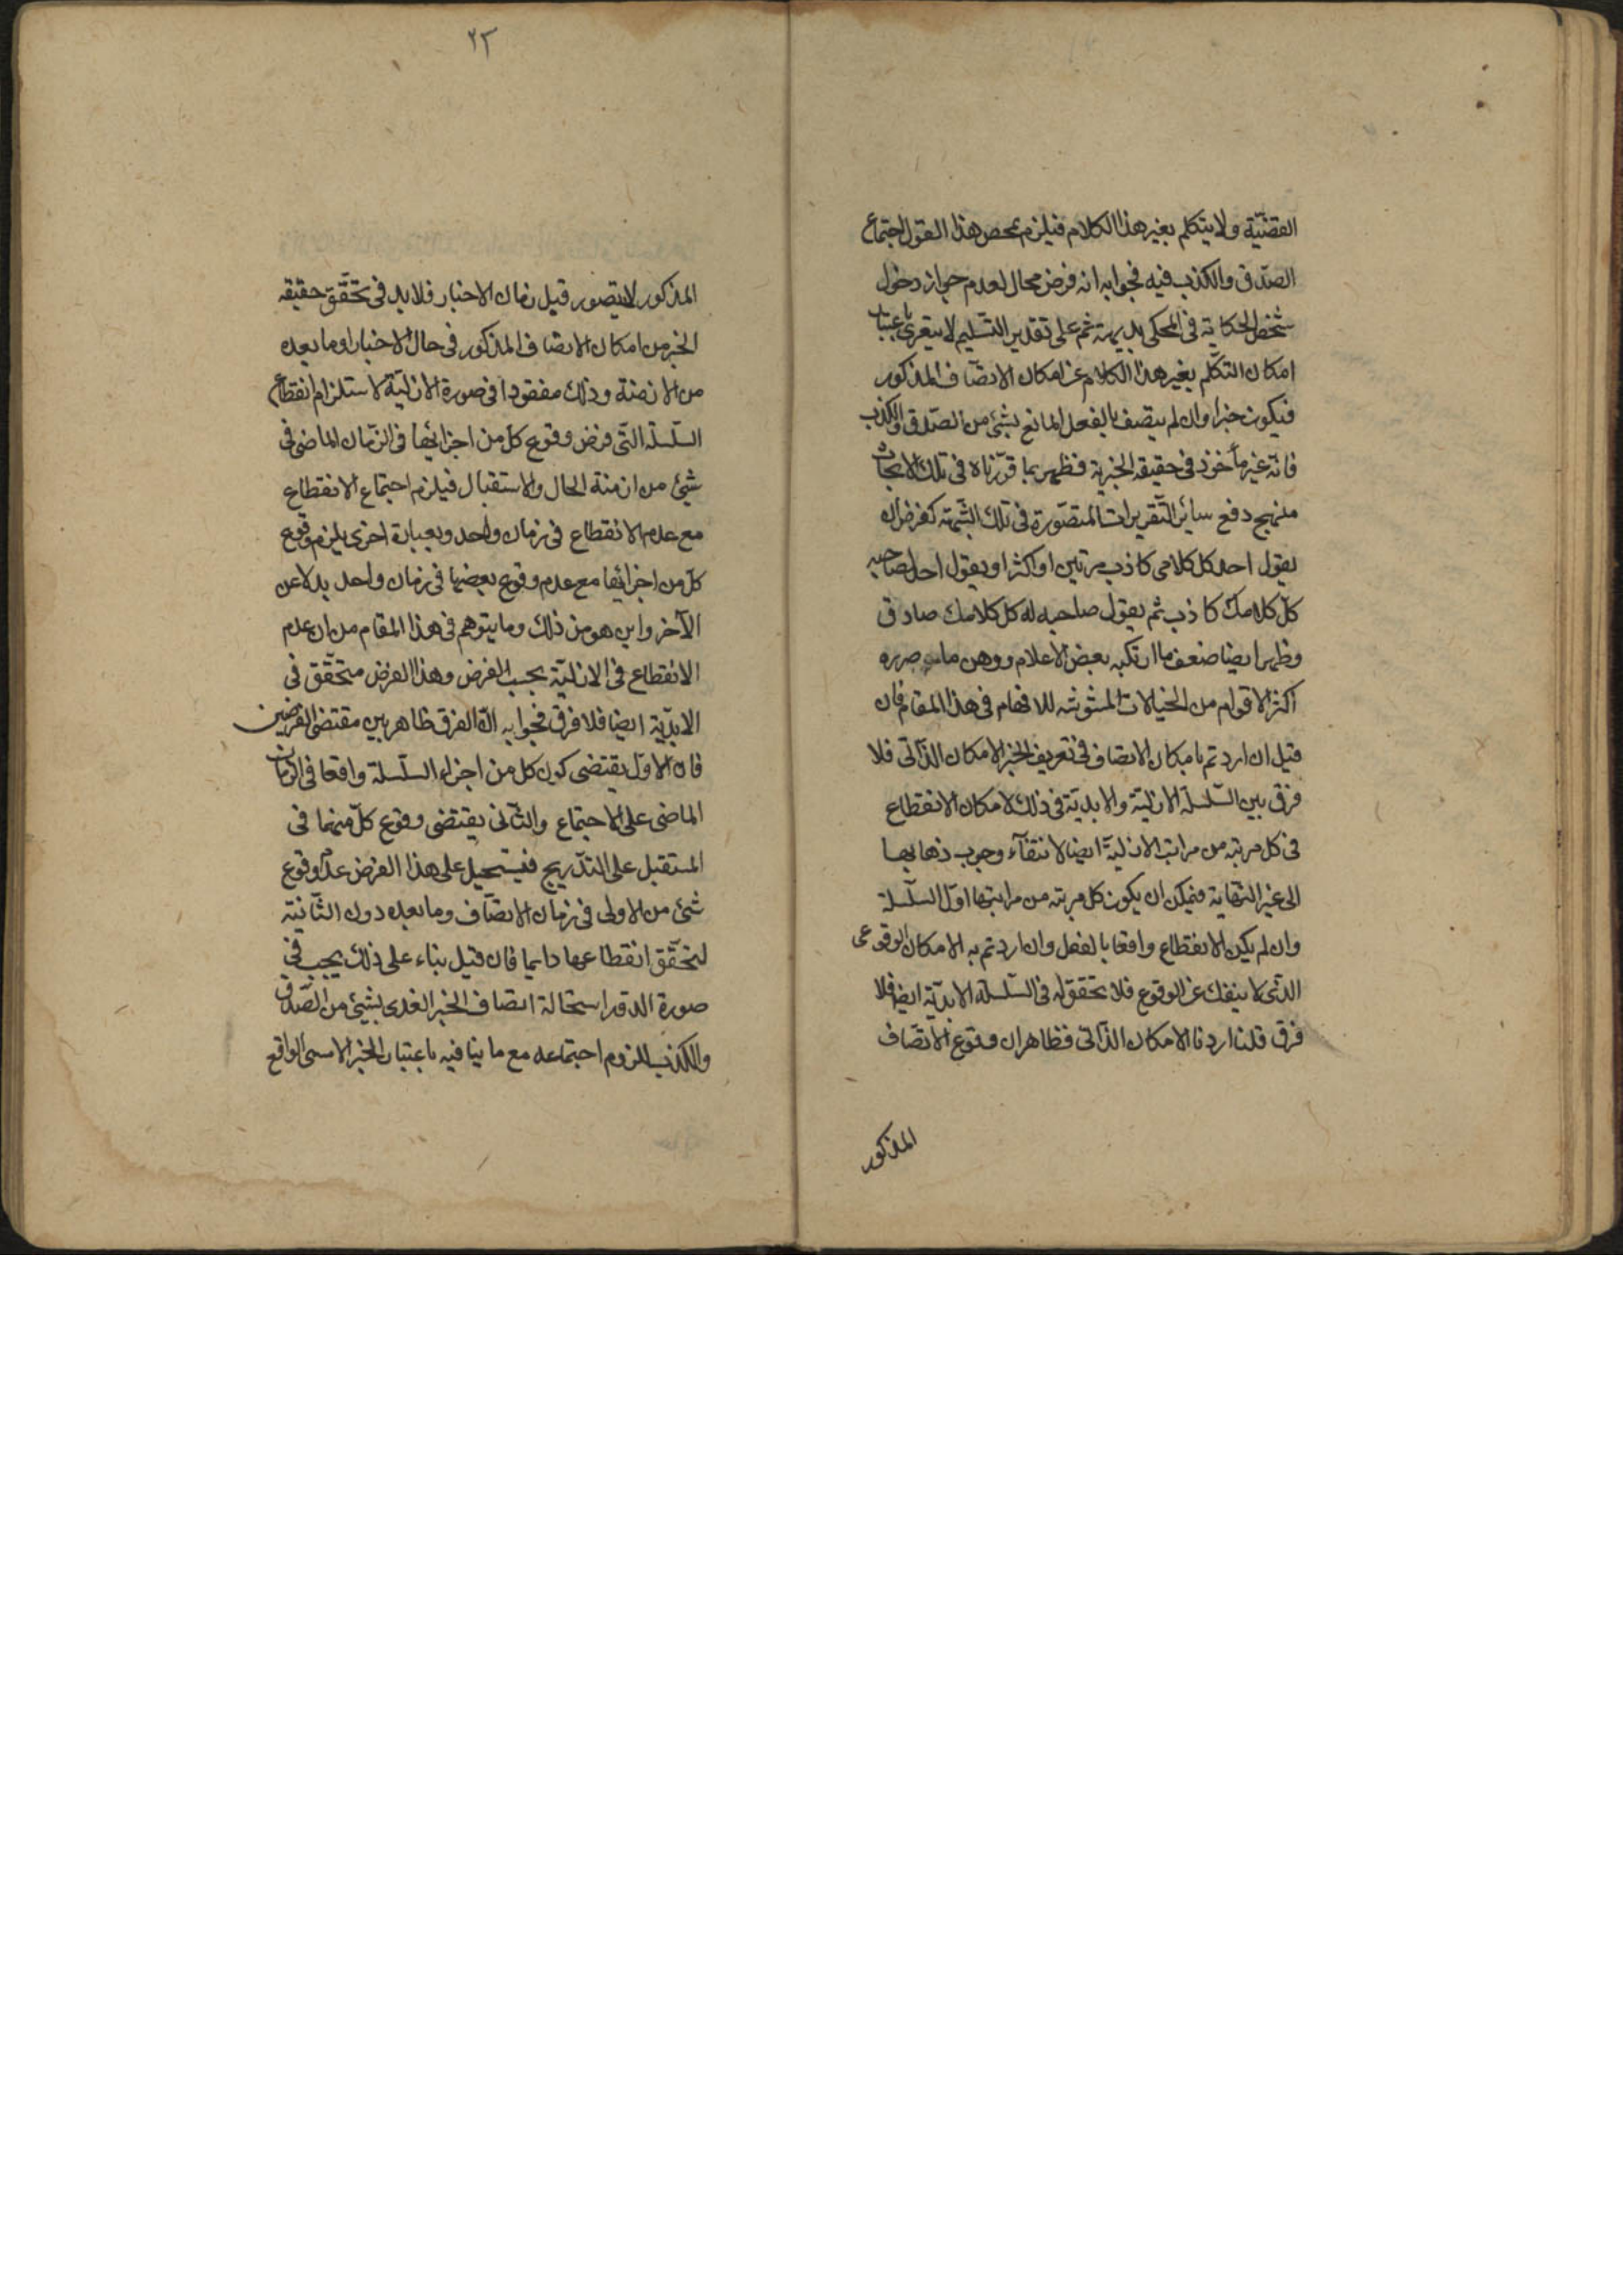 القضيّة ولا يتكلم بغير هذا الكلام فيلزم بمحض هذا القول اجتماع
الصّدق والكذب فيه فجوابه انه فرض محال لعدم جواز دخول
شخص الحكاية فى المحكى بديهة ثم على تقدير التّسليم لا يتعرى باعتبار
امكان التكلّم بغير هذا الكلام عن امكان الاتصاف المذكور
فيكون خبرا وان لم يتصف بالفعل لمانع بشئ من الصّدق والكذب
فانه غير مأخوذ فى حقيقة الخبرية فظهر بما قرّرناه فى تلك الابحاث
منهج دفع سائر التّقريرات المتصّورة فى تلك الشّبهة كفرض ان
يقول احد كل كلامى كاذب مرتين او اكثر او يقول احد لصاحبه
كلّ كلامك كاذب ثم يقول صاحبه له كل كلامك صادق
وظهر ايضا ضعف ما ارتكبه بعض الاعلام ووهن ما
اكثر الاقوام من الخيالات المشوشه للافهام فى هذا المقام فان
قيل ان اردتم بامكان الاتصاف فى تعريف الخبر الامكان الذّاتى فلا
فرق بين السّلسلة الازليّة والابديّة فى ذلك لامكان الانقطاع
فى كل مرتبة من مراتب الازليّة ايضا لانتفآء وجوب ذهابها
الى غير النّهاية فيمكن ان يكون كل مرتبة من مراتبها اوّل السّلسلة
وان لم يكن الانقطاع واقعا بالفعل وان اردتم به الامكان الوقوعى
الذّى لا ينفك عن الوقوع فلا تحقق له فى السّلسلة الابديّة ايضا فلا
فرق قلنا اردنا الامكان الذّاتى فظاهر ان وقوع الاتصّاف
المذكور
٢٢
المذكور لا يتصور قبل زمان الاخبار فلا بد فى تحقّق حقيقة
الخبر من امكان الاتصاف المذكور فى حال الاخبار او ما بعده
من الازمنة وذلك مفقود فى صورة الازليّة لاستلزام انقطاع
السّلسلة التّى فرض وقوع كل من اجزائها فى الزّمان الماضى فى
شئ من ازمنة الحال والاستقبال فيلزم اجتماع الانقطاع
مع عدم الانقطاع فى زمان واحد وبعبارة اخرى يلزم وقوع
كل من اجزائها مع عدم وقوع بعضها فى زمان واحد بدلا عن
الآخر واين هو من ذلك وما يتوهم فى هذا المقام من ان عدم
الانقطاع فى الازليّة بحسب الفرض وهذا الفرض متحقّق فى
الابدّية ايضا فلا فرق فجوابه انّ الفرق ظاهر بين مقتضى الفرضين
فان الاوّل يقتضى كون كل من اجزاء السّلسلة واقعا فى الزمان
الماضى على الاجتماع والثّانى يقتضى وقوع كلّ منها فى
المستقبل على التدّريج فيستحيل على هذا الفرض عدم وقوع
شئ من الاولى فى زمان الاتصّاف وما بعده دون الثّانية
لتحقّق انقطاعها دايما فان قيل بناء على ذلك يجب فى
صورة الدّور استحالة اتصاف الخبر الغدى بشئ من الصّدق
والكذب للزوم اجتماعه مع ما ينافيه باعتبار الخبر الامسى الواقع